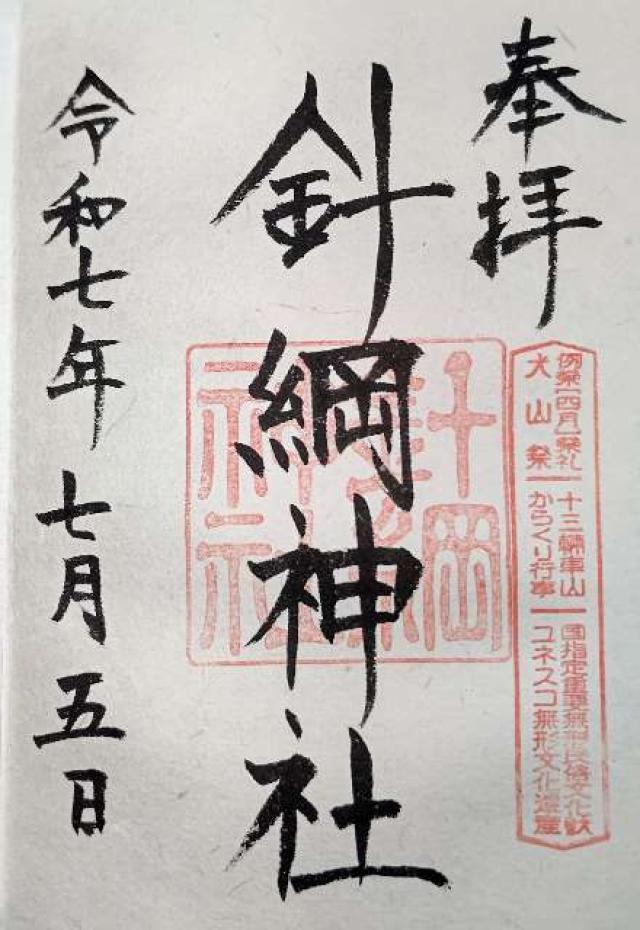 奉拝
例祭四月祭礼
犬山祭
十三輛車山
からくり行事
国指定重要無形民俗文化財
ユネスコ無形文化遺産
針綱神社
針綱
神社
令和七年七月五日